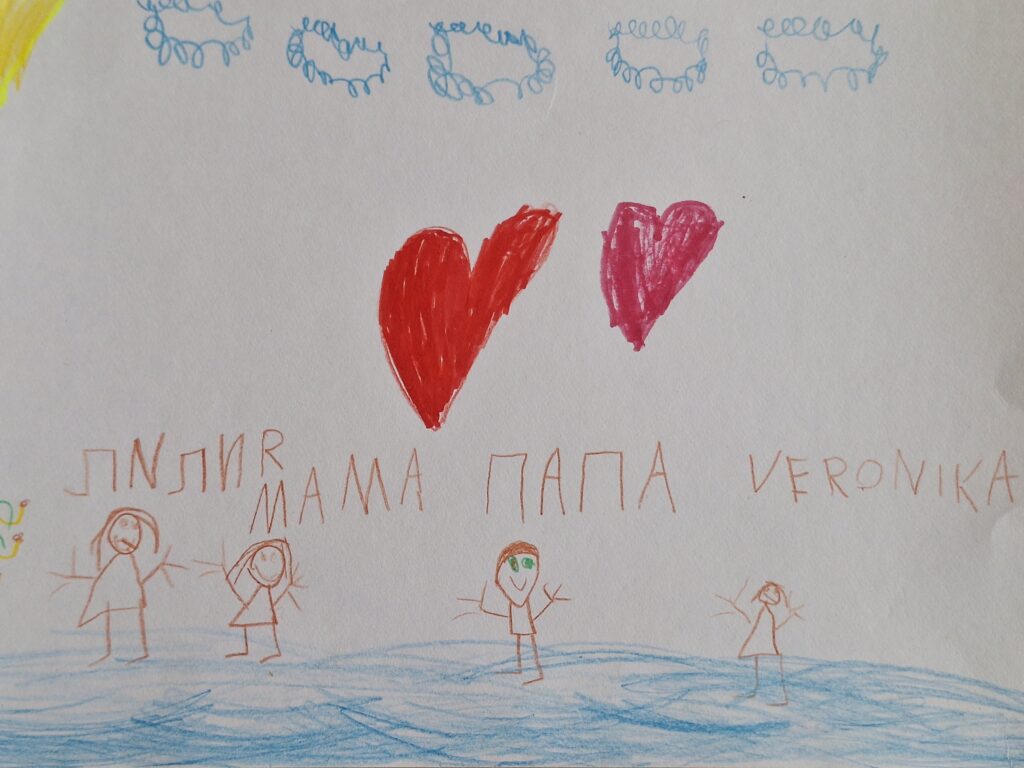 ЛNЛИR МАМА ПАПА VERONIKA